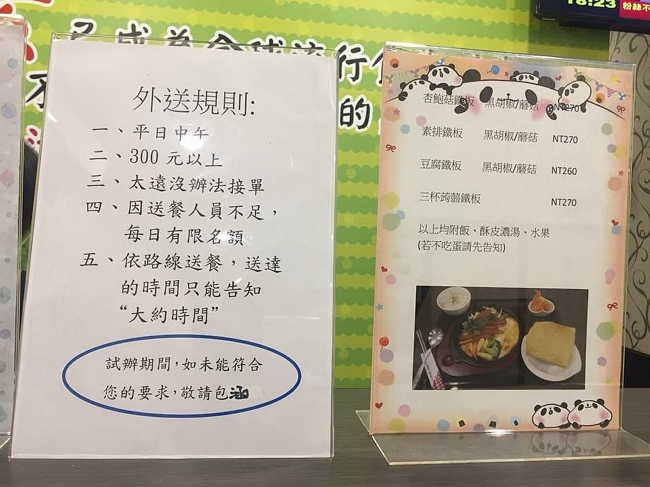 已成為全球流行
的
18:23
粉絲不
外送規則:
一、平日中午
二、300 元以上
三、太遠沒辦法接單
四、因送餐人員不足，
每日有限名額
五、依路線送餐，送達
的時間只能告知
“大約時間”
試辦期間，如未能符合
您的要求，敬請包涵
杏鮑菇鐵板 黑胡椒/蘑菇 NT270
素排鐵板 黑胡椒/蘑菇 NT270
豆腐鐵板 黑胡椒/蘑菇 NT260
三杯蒟蒻鐵板 NT270
以上均附飯、酥皮濃湯、水果
(若不吃蛋請先告知)